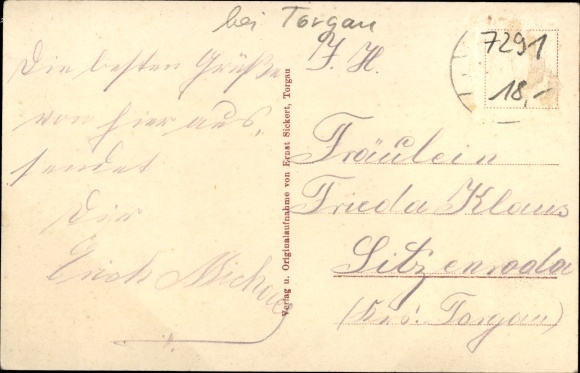 bei Torgau
7291
18,-
Die besten Grüße
von hier aus,
sendet
Dir
Erich
Verlag u. Originalaufnahme von Ernst Sickert, Torgau
Fräulein
Frieda Klaus
Sitzenroda
(Krs. Torgau)